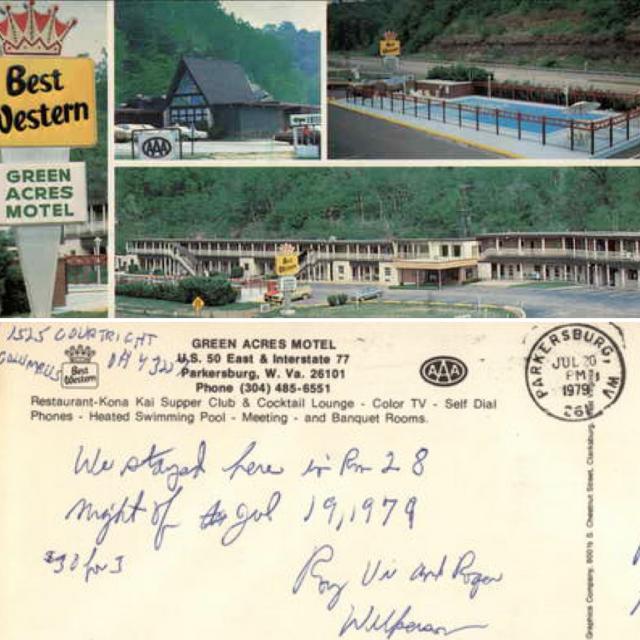 Best
Western
GREEN
ACRES
MOTEL
AAA
Best
Western
1525 COURTRIGHT
COLUMBUS OH
Best
Western
GREEN ACRES MOTEL
U.S. 50 East & Interstate 77
Parkersburg, W. Va. 26101
Phone (304) 485-6551
AAA
Restaurant-Kona Kai Supper Club & Cocktail Lounge - Color TV - Self Dial
Phones - Heated Swimming Pool - Meeting - and Banquet Rooms.
PARKERSBURG, WV
JUL 20
PM
1979
261
We stayed here in Rm 28
night of Jul 19, 1979
$30 for 3
Roy Vi and Roger
Company, S. Chestnut Street, Clarksburg,